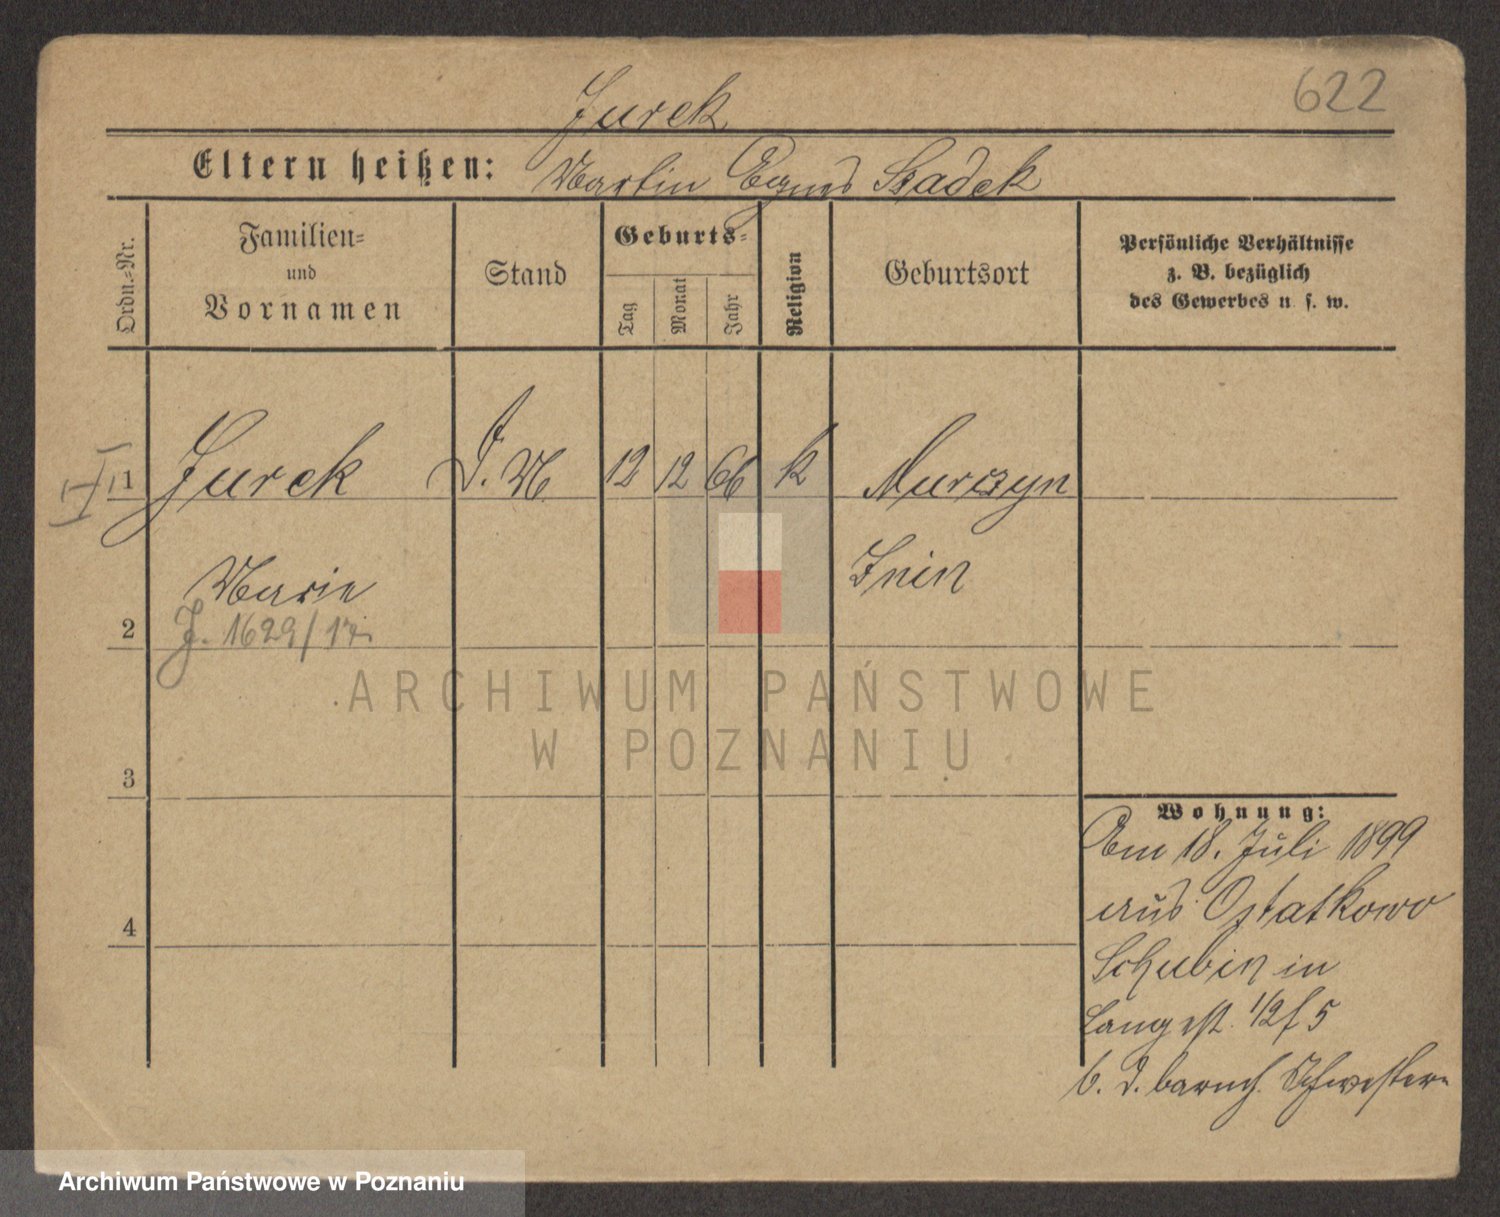 622
Jurek
Eltern heißen: Martin Agnes Szadek
Ordn.-Nr.
Familien-
und
Vornamen
Stand
Geburts-
Tag
Monat
Jahr
Religion
Geburtsort
Persönliche Verhältnisse
z. B. bezüglich
des Gewerbes u. s. w.
1 Jurek D. M 12 12 66 k Murczyn
Marie Znin
2 J. 1629/17.
ARCHIWUM PAŃSTWOWE
W POZNANIU
3
4
Wohnung:
Am 18. Juli 1899
aus Ostatkowo
Schubin in
Langestr. 1/2 f 5
b. d. barmh. Schwestern
Archiwum Państwowe w Poznaniu